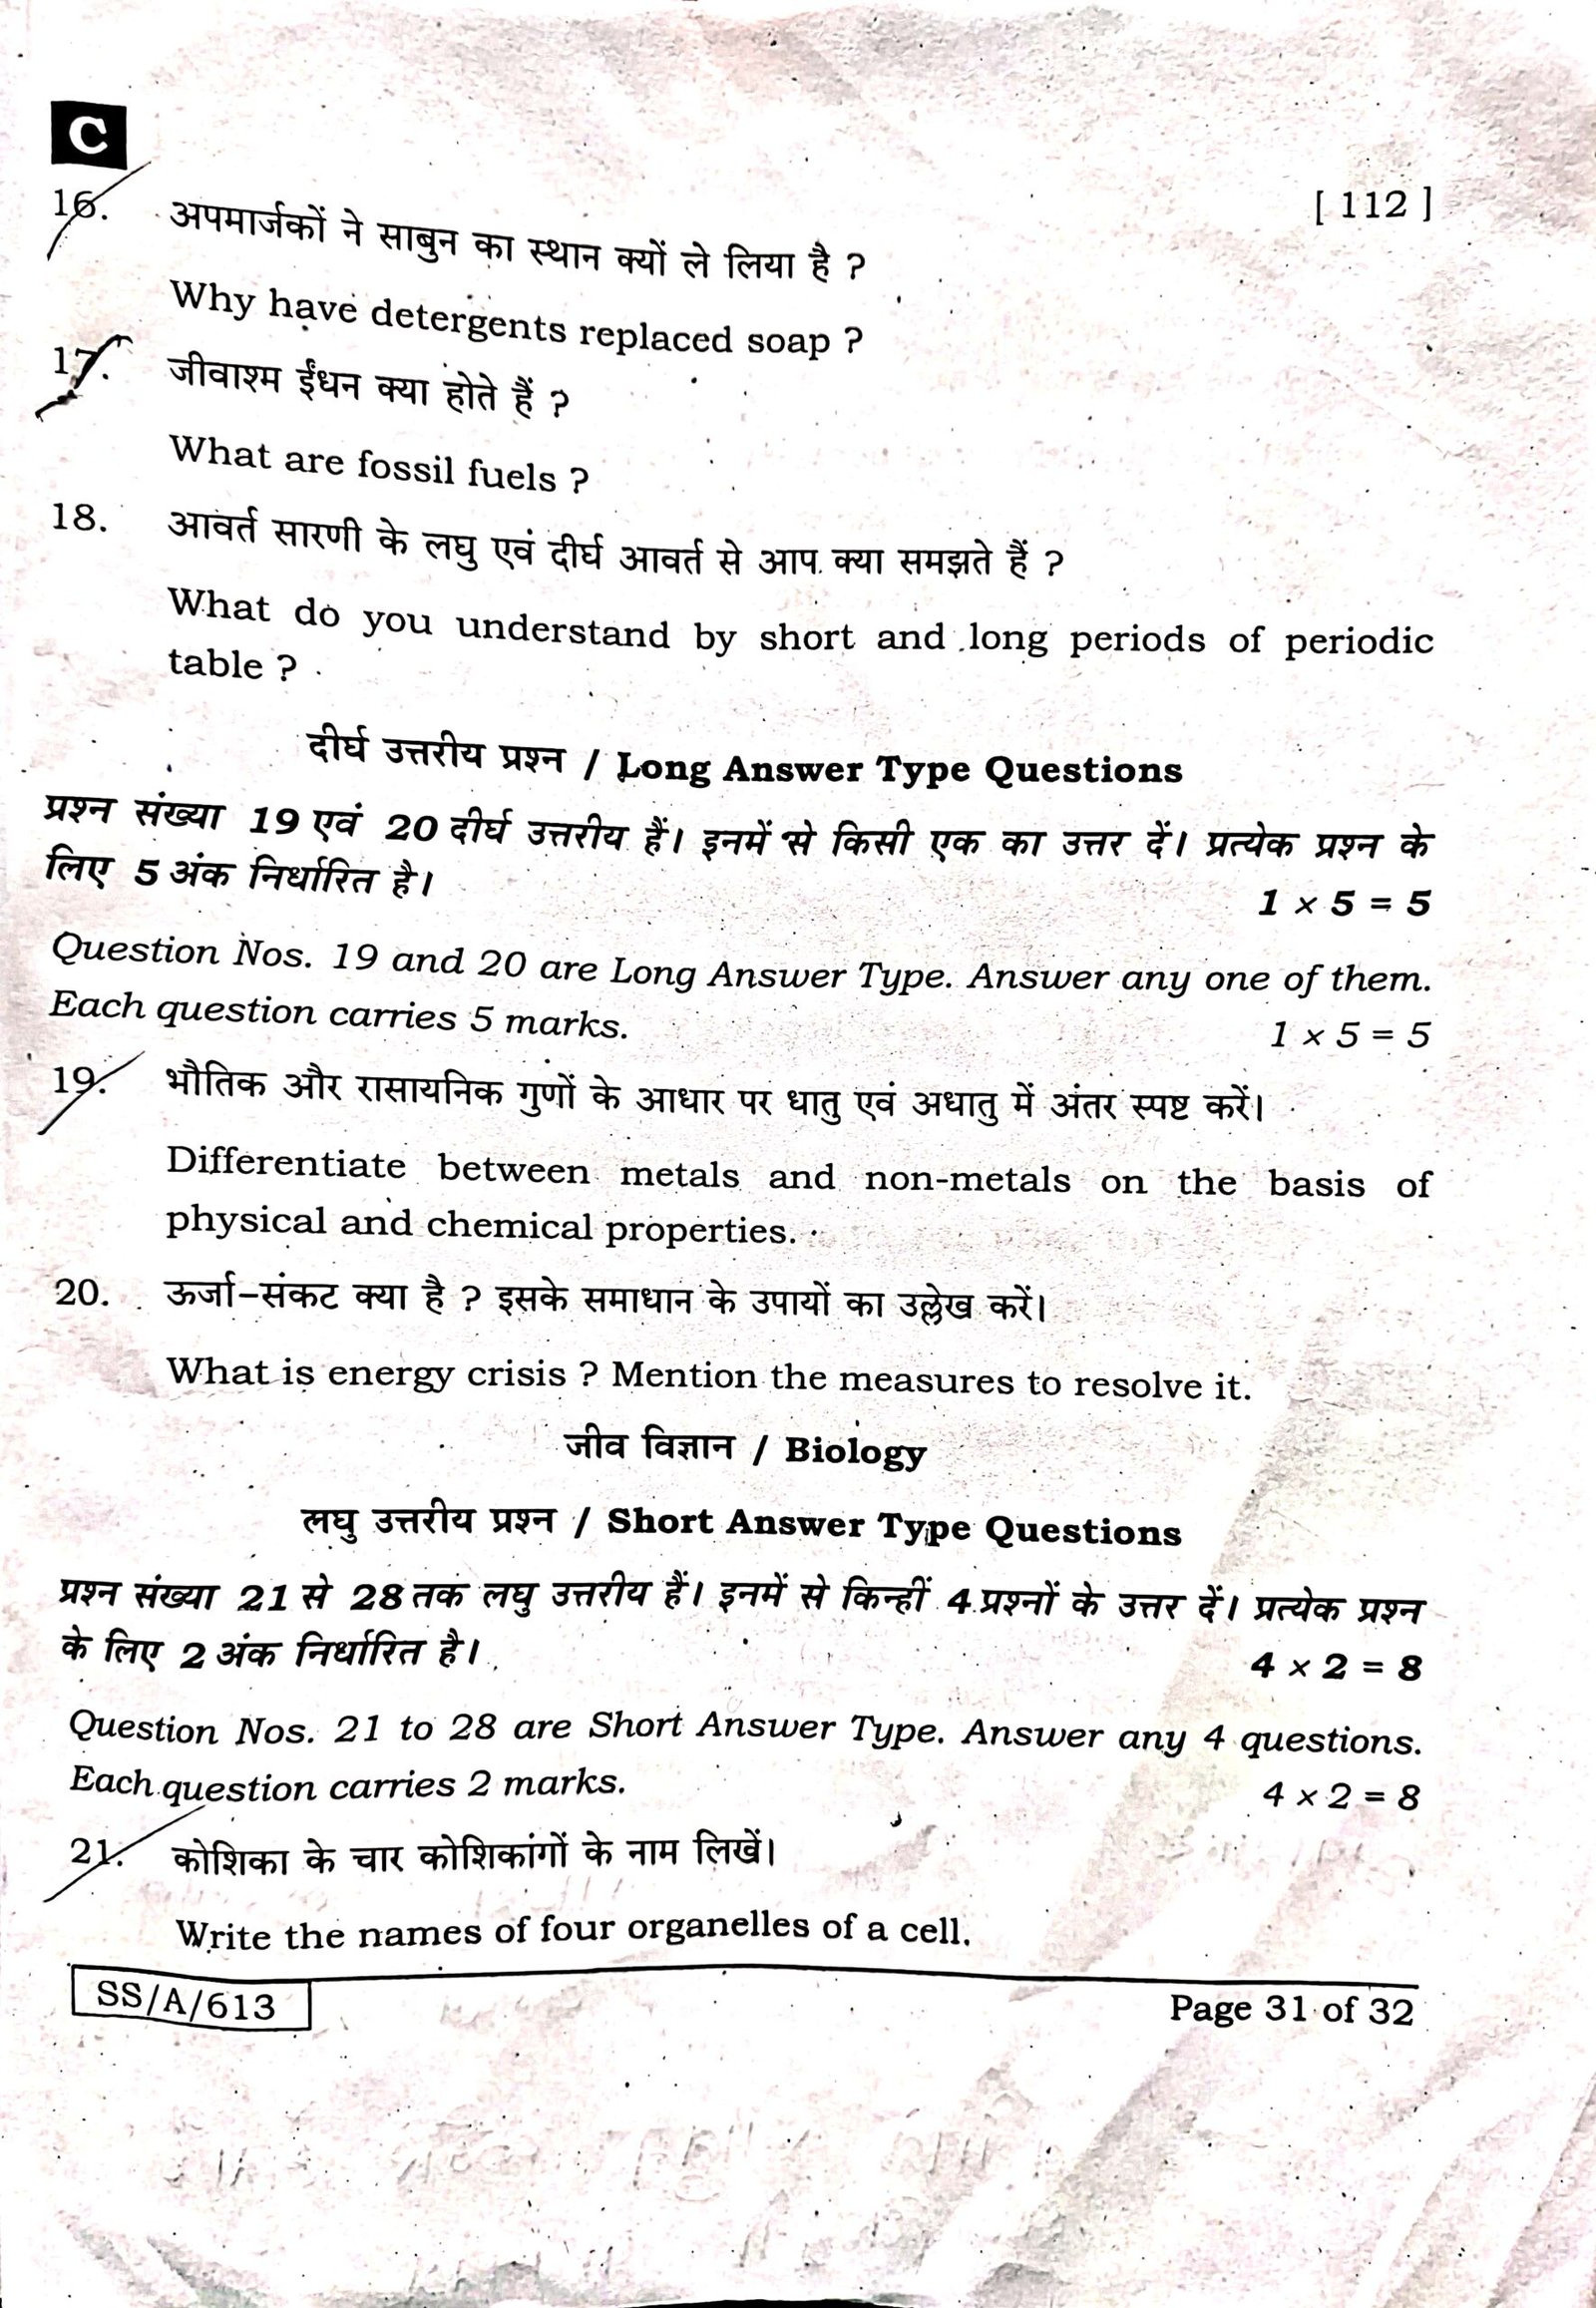 C
[ 112 ]
16. अपमार्जकों ने साबुन का स्थान क्यों ले लिया है ?
Why have detergents replaced soap ?
17. जीवाश्म ईंधन क्या होते हैं ?
What are fossil fuels ?
18. आवर्त सारणी के लघु एवं दीर्घ आवर्त से आप क्या समझते हैं ?
What do you understand by short and long periods of periodic
table ?
दीर्घ उत्तरीय प्रश्न / Long Answer Type Questions
प्रश्न संख्या 19 एवं 20 दीर्घ उत्तरीय हैं। इनमें से किसी एक का उत्तर दें। प्रत्येक प्रश्न के
लिए 5 अंक निर्धारित है। 1 × 5 = 5
Question Nos. 19 and 20 are Long Answer Type. Answer any one of them.
Each question carries 5 marks. 1 × 5 = 5
19. भौतिक और रासायनिक गुणों के आधार पर धातु एवं अधातु में अंतर स्पष्ट करें।
Differentiate between metals and non-metals on the basis of
physical and chemical properties.
20. ऊर्जा-संकट क्या है ? इसके समाधान के उपायों का उल्लेख करें।
What is energy crisis ? Mention the measures to resolve it.
जीव विज्ञान / Biology
लघु उत्तरीय प्रश्न / Short Answer Type Questions
प्रश्न संख्या 21 से 28 तक लघु उत्तरीय हैं। इनमें से किन्हीं 4 प्रश्नों के उत्तर दें। प्रत्येक प्रश्न
के लिए 2 अंक निर्धारित है। 4 × 2 = 8
Question Nos. 21 to 28 are Short Answer Type. Answer any 4 questions.
Each question carries 2 marks. 4 × 2 = 8
21. कोशिका के चार कोशिकांगों के नाम लिखें।
Write the names of four organelles of a cell.
SS/A/613 Page 31 of 32